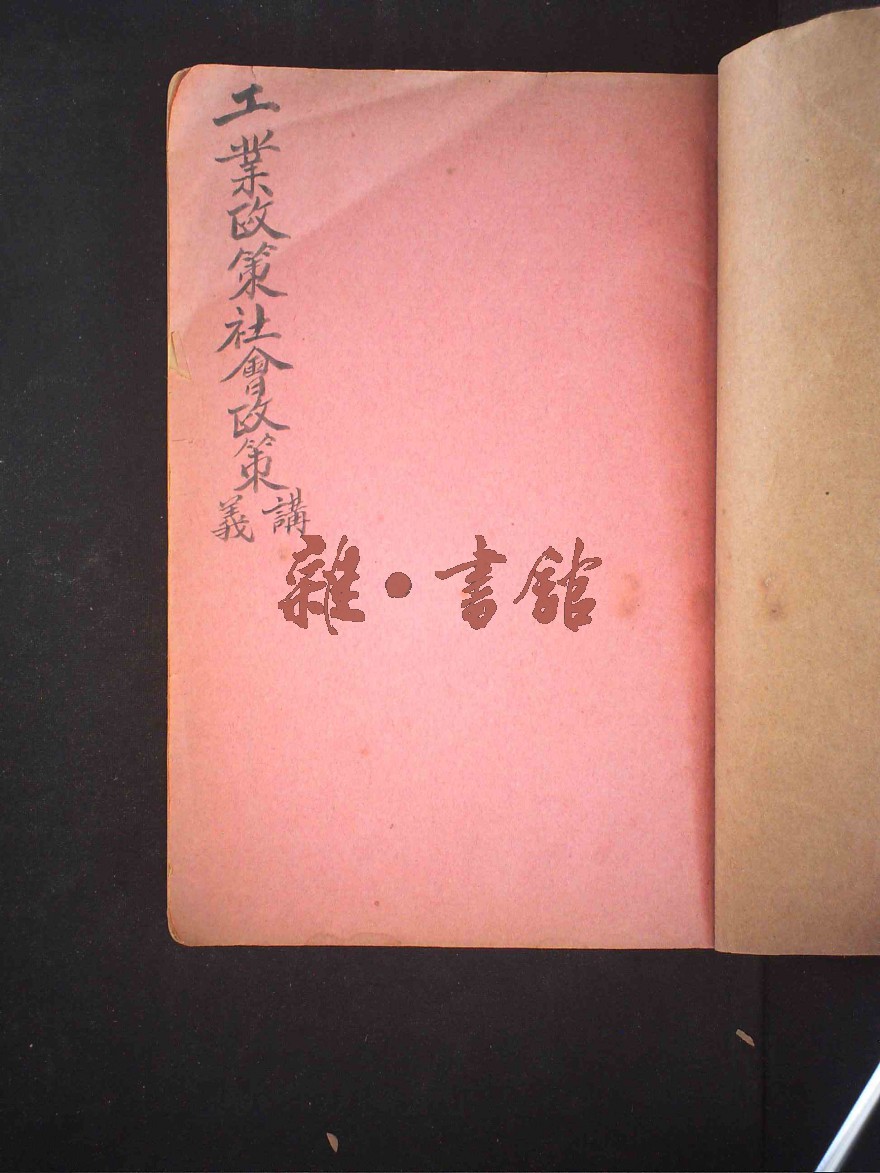 工業政策社會政策講義
雜·書館